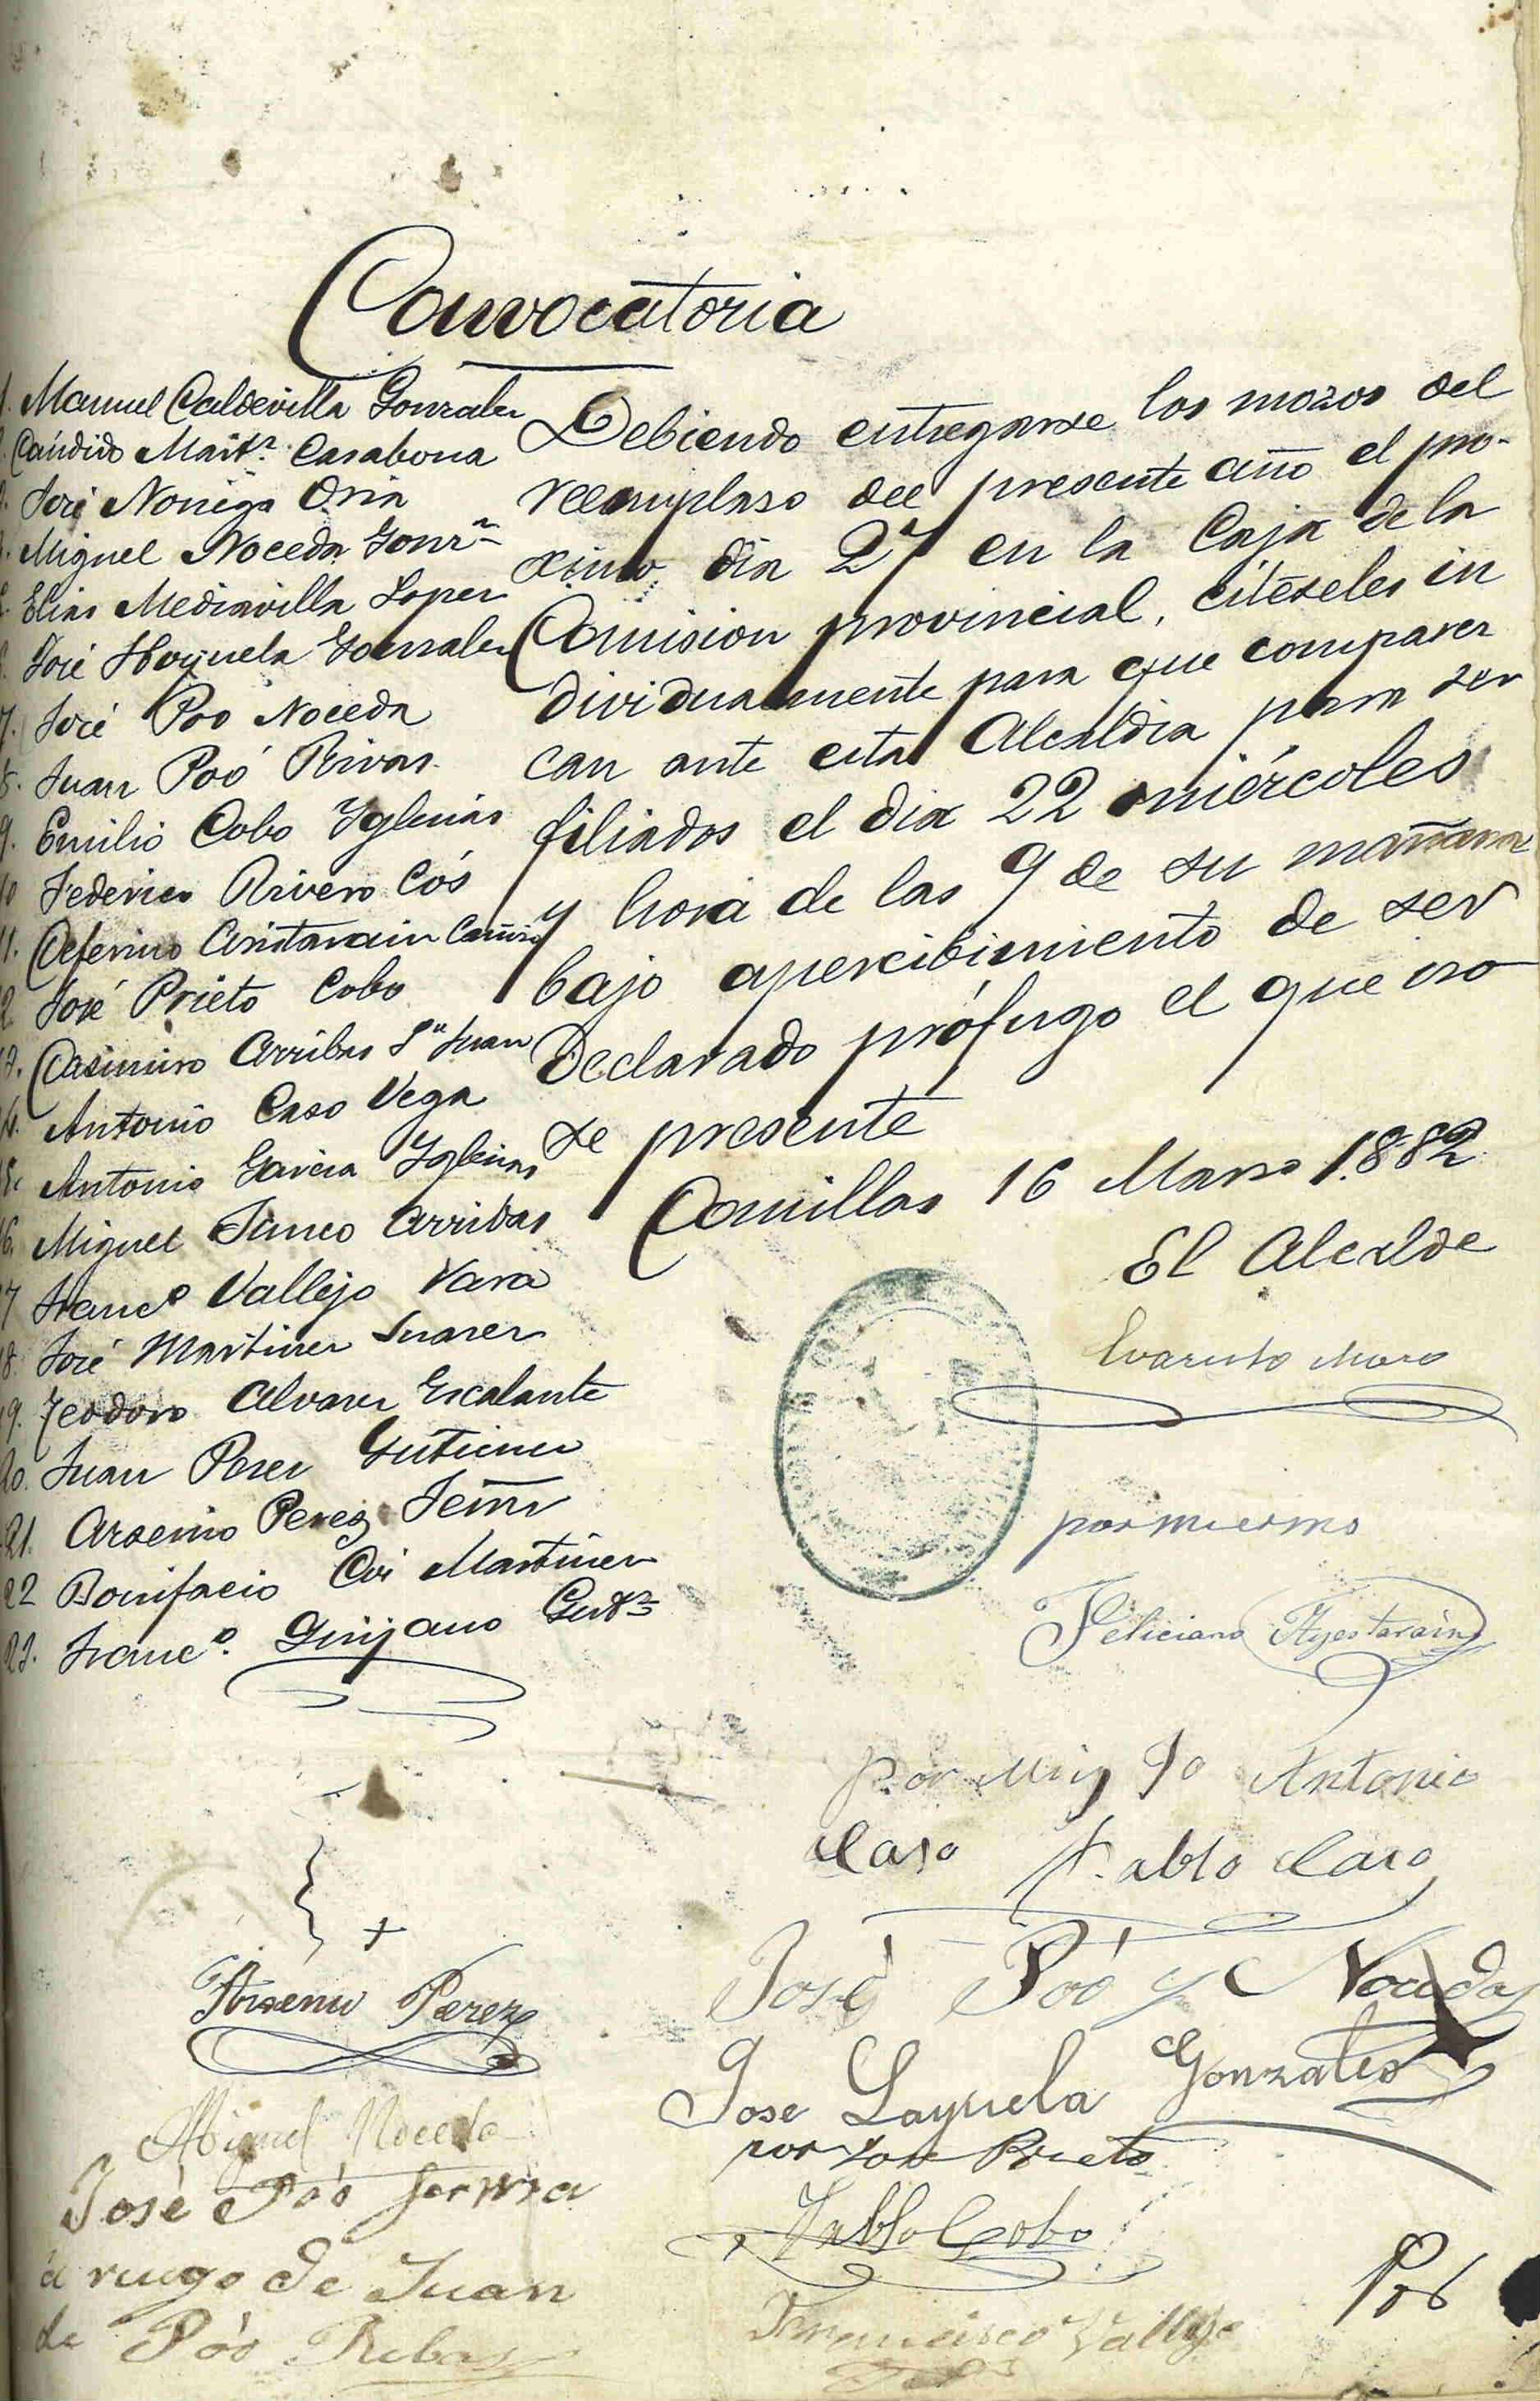 Convocatoria
1. Manuel Caldevilla Gonzalez
2. Cándido Martz. Casabona
3. José Noriega Oria
4. Miguel Noceda Gonzz
5. Elias Mediavilla Lopez
6. José Hoyuela Gonzalez
7. José Poo Noceda
8. Juan Poó Rivas
9. Emilio Cobo Yglesias
10 Federico Rivero Cós
11. Ceferino Aristarain
12 José Prieto Cobo
13. Casimiro Arribas Sn Juan
14. Antonio Caso Vega
15. Antonio Garcia Yglesias
16. Miguel Junco Arribas
17 Franco Vallejo Vara
18. José Martinez Suarez
19. Teodoro Alvarez Escalante
20. Juan Perez Gutierrez
21. Arsenio Perez
22 Bonifacio Martinez
23. Franco. Quijano Gutz
Debiendo entregarse los mozos del
reemplaso del presente año el pro-
ximo dia 27 en la Caja de la
Comision provincial, citéseles in
dividualmente para que comparez
can ante esta Alcaldia para ser
filiados el dia 22 miércoles
y hora de las 9 de su mañana
bajo apercibimiento de ser
declarado prófugo el que no
se presente
Comillas 16 Marzo 1.882
El Alcalde
Evaristo Moro
por mi ermo
Feliciano Ayestarain
por mi Antonio
Caso Pablo Caso
José Poó y Noceda
Jose Layuela Gonzales
por José Prieto
Pablo Cobo
Francisco Vallejo
Por
Arsenio Perez
Miguel Noceda
José Poó firma
a ruego de Juan
de Póo Ribas